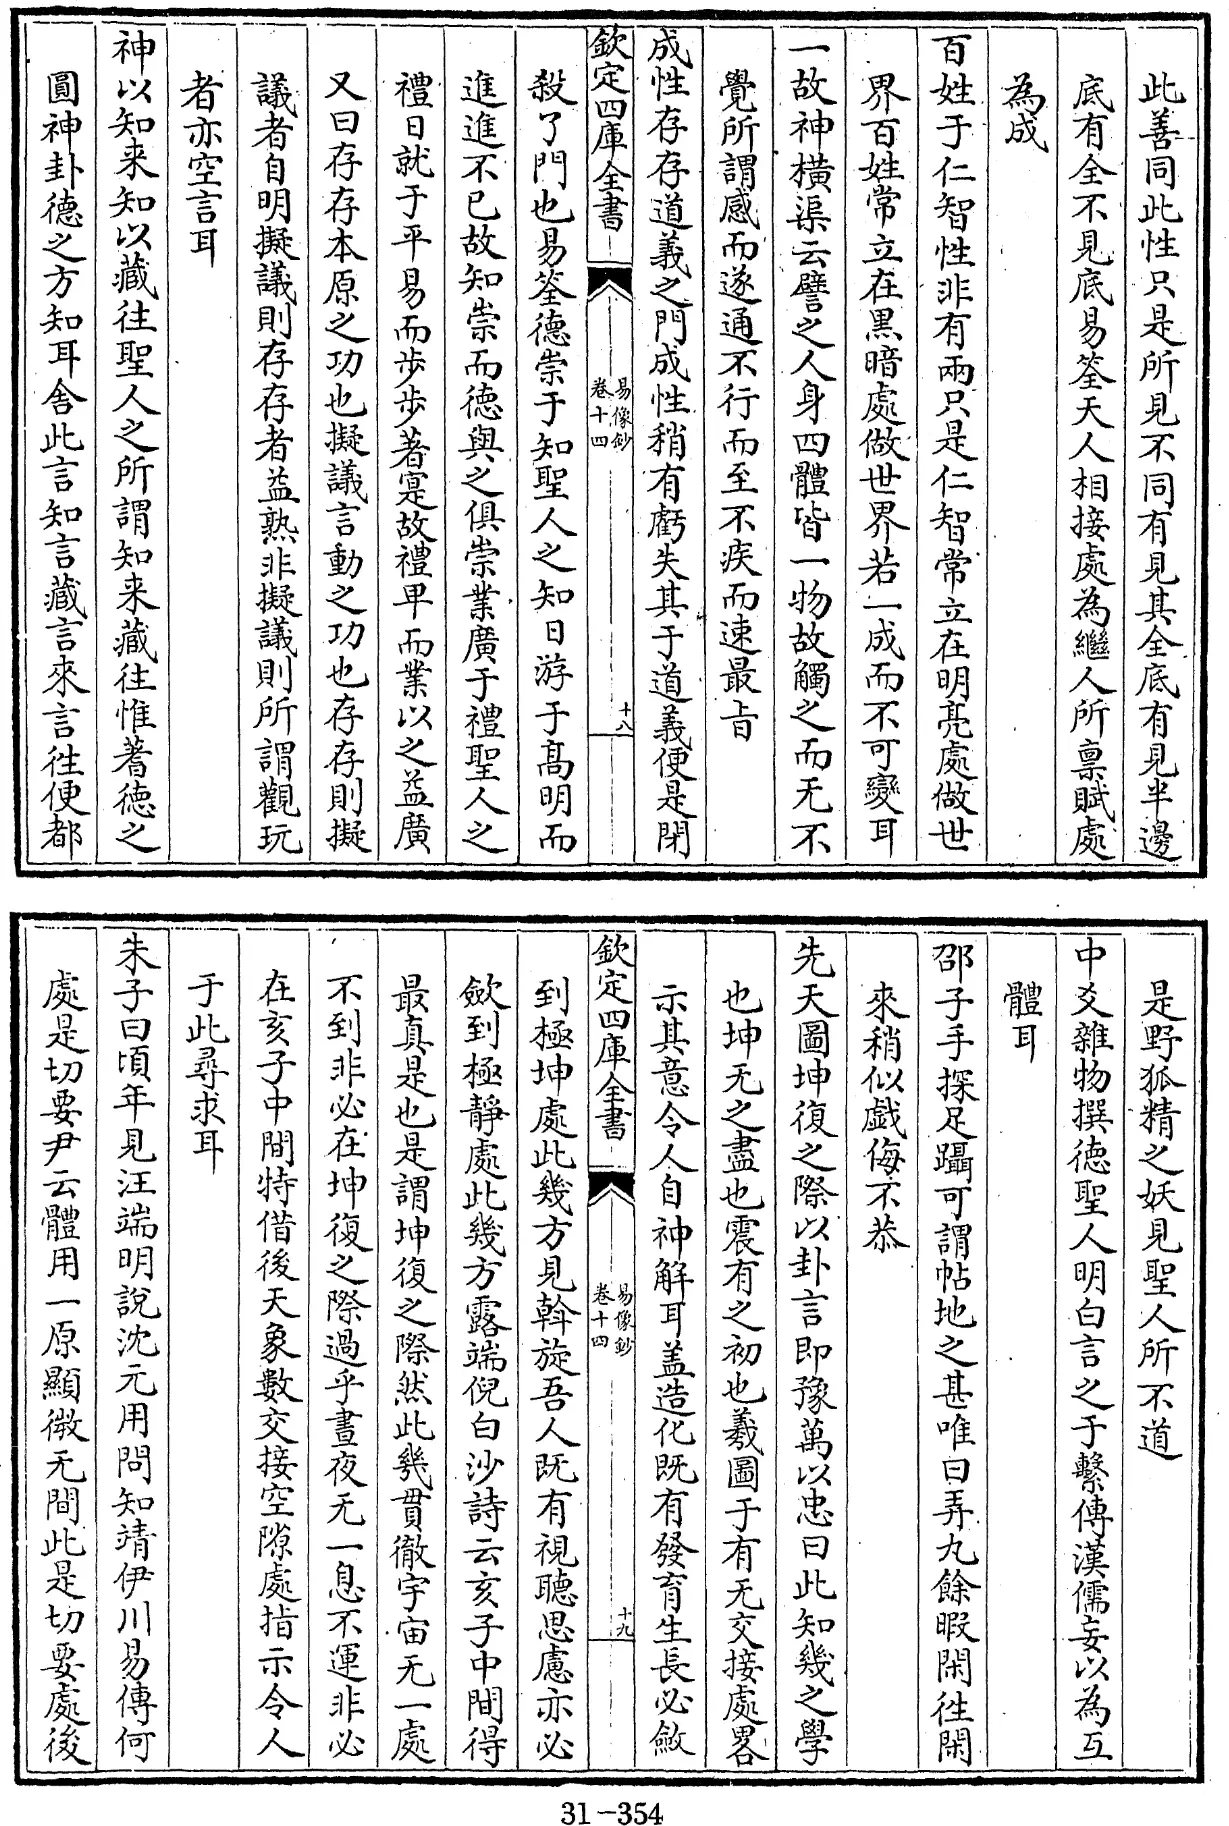 此善同此性只是所見不同有見其全底有見半邊
底有全不見底易筌天人相接處為繼人所稟賦處
為成
百姓于仁智性非有兩只是仁智常立在明亮處做世
界百姓常立在黑暗處做世界若一成而不可變耳
一故神橫渠云譬之人身四體皆一物故觸之而无不
覺所謂感而遂通不行而至不疾而速最旨
成性存存道義之門成性稍有虧失其于道義便是閉
欽定四庫全書
易像鈔
卷十四
十八
殺了門也易筌德崇于知聖人之知日游于髙明而
進進不已故知崇而德與之俱崇業廣于禮聖人之
禮日就于平易而歩歩著寔故禮卑而業以之益廣
又曰存存本原之功也擬議言動之功也存存則擬
議者自明擬議則存存者益熟非擬議則所謂觀玩
者亦空言耳
神以知来知以藏往聖人之所謂知来藏往惟蓍德之
圓神卦德之方知耳舍此言知言藏言來言徃便都
是野狐精之妖見聖人所不道
中爻雜物撰德聖人明白言之于繫傳漢儒妄以為互
體耳
邵子手探足躡可謂帖地之甚唯曰弄丸餘暇閑徃閑
來稍似戲侮不恭
先天圖坤復之際以卦言即豫萬以忠曰此知幾之學
也坤无之盡也震有之初也羲圖于有无交接處畧
示其意令人自神解耳盖造化既有發育生長必斂
欽定四庫全書
易像鈔
卷十四
十九
到極坤處此幾方見斡旋吾人既有視聽思慮亦必
斂到極靜處此幾方露端倪白沙詩云亥子中間得
最真是也是謂坤復之際然此幾貫徹宇宙无一處
不到非必在坤復之際過乎晝夜无一息不運非必
在亥子中間特借後天象數交接空隙處指示令人
于此尋求耳
朱子曰頃年見汪端明說沈元用問知靖伊川易傳何
處是切要尹云體用一原顯微无間此是切要處後
31-354